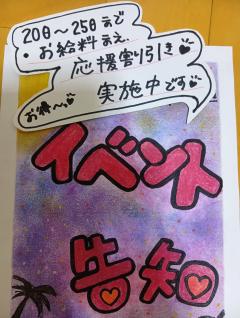 20日〜25日まで
・お給料まえ
応援割引き
実施中です
お得〜
イベント
告知